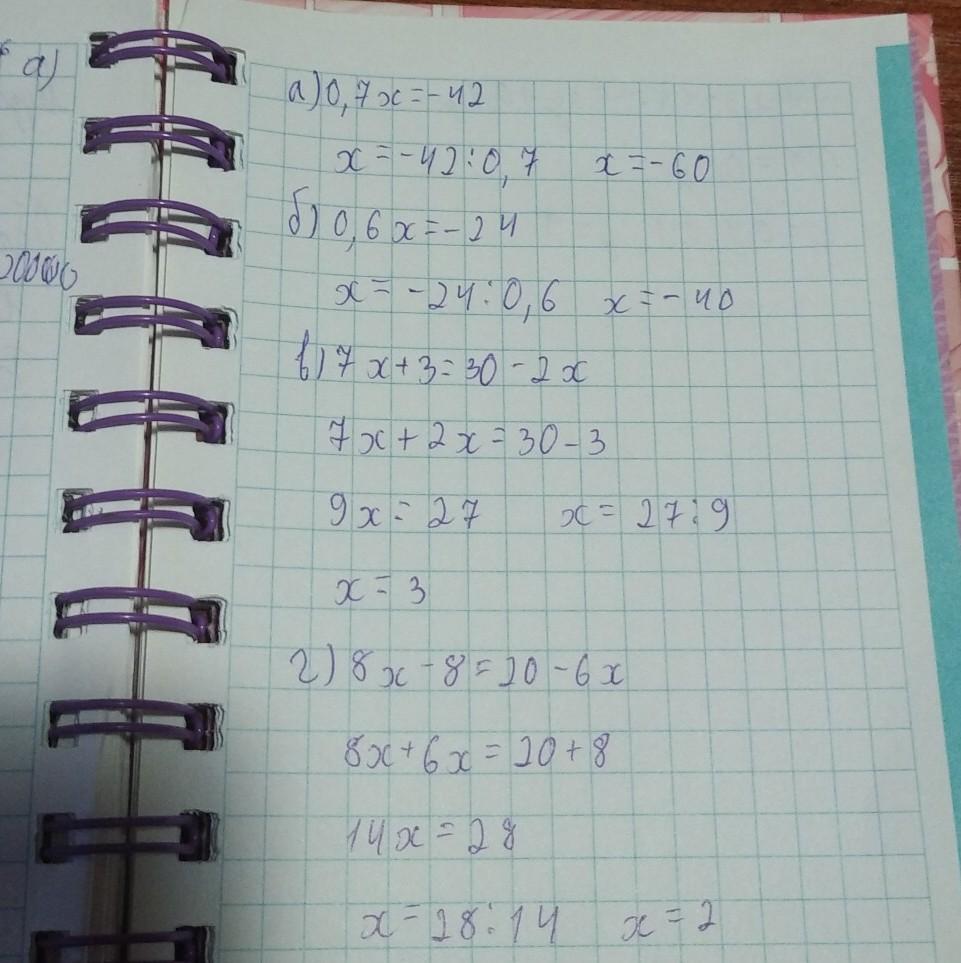 а)
а) 0,7x = -42
x = -42 : 0,7 x = -60
б) 0,6x = -24
x = -24 : 0,6 x = -40
в) 7x + 3 = 30 - 2x
7x + 2x = 30 - 3
9x = 27 x = 27 : 9
x = 3
г) 8x - 8 = 20 - 6x
8x + 6x = 20 + 8
14x = 28
x = 28 : 14 x = 2